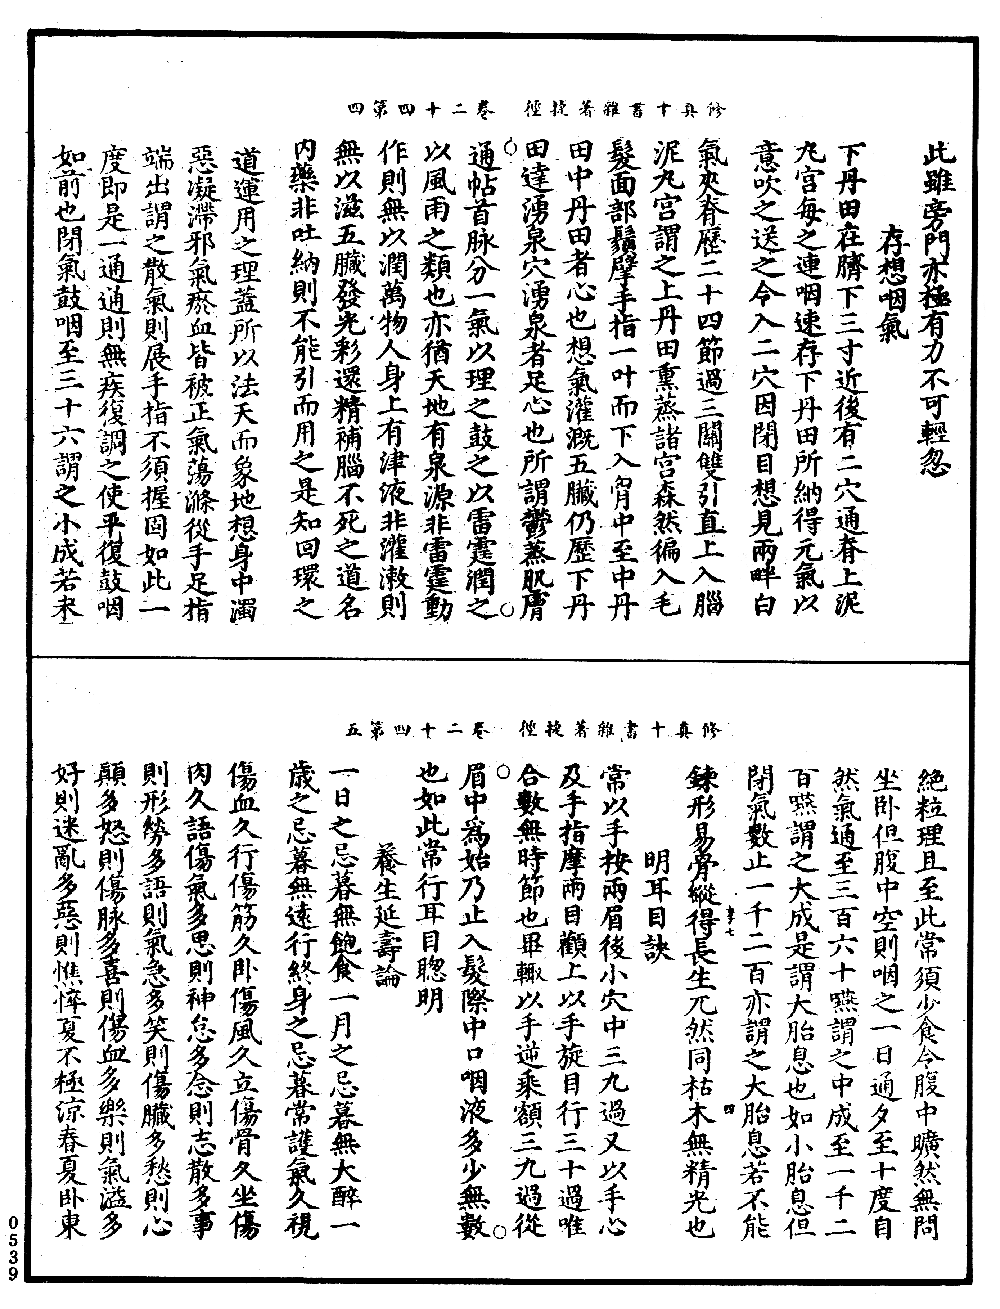 修真十書雜著捷徑　卷二十四第四
此雖旁門亦極有力不可輕忽
存想咽氣
下丹田在臍下三寸近後有二穴通脊上泥
丸宮每之連咽速存下丹田所納得元氣以
意吹之送之令入二穴因閉目想見兩畔白
氣夾脊歷二十四節過三關雙引直上入腦
泥丸宮謂之上丹田熏蒸諸宮森然徧入毛
髮面部鬚擘手指一叶而下入胷中至中丹
田中丹田者心也想氣灌溉五臟仍歷下丹
田達湧泉穴湧泉者足心也所謂鬱蒸肌膚
通帖首脉分一氣以理之鼓之以雷霆潤之
以風雨之類也亦猶天地有泉源非雷霆動
作則無以潤萬物人身上有津液非灌漱則
無以滋五臟發光彩還精補腦不死之道名
内藥非吐納則不能引而用之是知回環之
道運用之理蓋所以法天而象地想身中濁
惡凝滯邪氣瘀血皆被正氣蕩滌從手足指
端出謂之散氣則展手指不須握固如此一
度即是一通通則無疾復調之使平復鼓咽
如前也閉氣鼓咽至三十六謂之小成若未
修真十書雜著捷徑　卷二十四第五
絶粒理且至此常須少食令腹中曠然無問
坐卧但腹中空則咽之一日通夕至十度自
然氣通至三百六十嚥謂之中成至一千二
百嚥謂之大成是謂大胎息也如小胎息但
閉氣數止一千二百亦謂之大胎息若不能
鍊形易骨縱得長生兀然同枯木無精光也
明耳目訣
常以手按兩眉後小穴中三九過又以手心
及手指摩兩目顴上以手旋目行三十過唯
合數無時節也畢輒以手逆乘額三九過從
眉中爲始乃止入髮際中口咽液多少無數
也如此常行耳目聰明
養生延壽論
一日之忌暮無飽食一月之忌暮無大醉一
歲之忌暮無遠行終身之忌暮常護氣久視
傷血久行傷筋久卧傷風久立傷骨久坐傷
肉久語傷氣多思則神怠多念則志散多事
則形勞多語則氣急多笑則傷臟多愁則心
顛多怒則傷脉多喜則傷血多樂則氣溢多
好則迷亂多惡則憔悴夏不極涼春夏卧東
0539